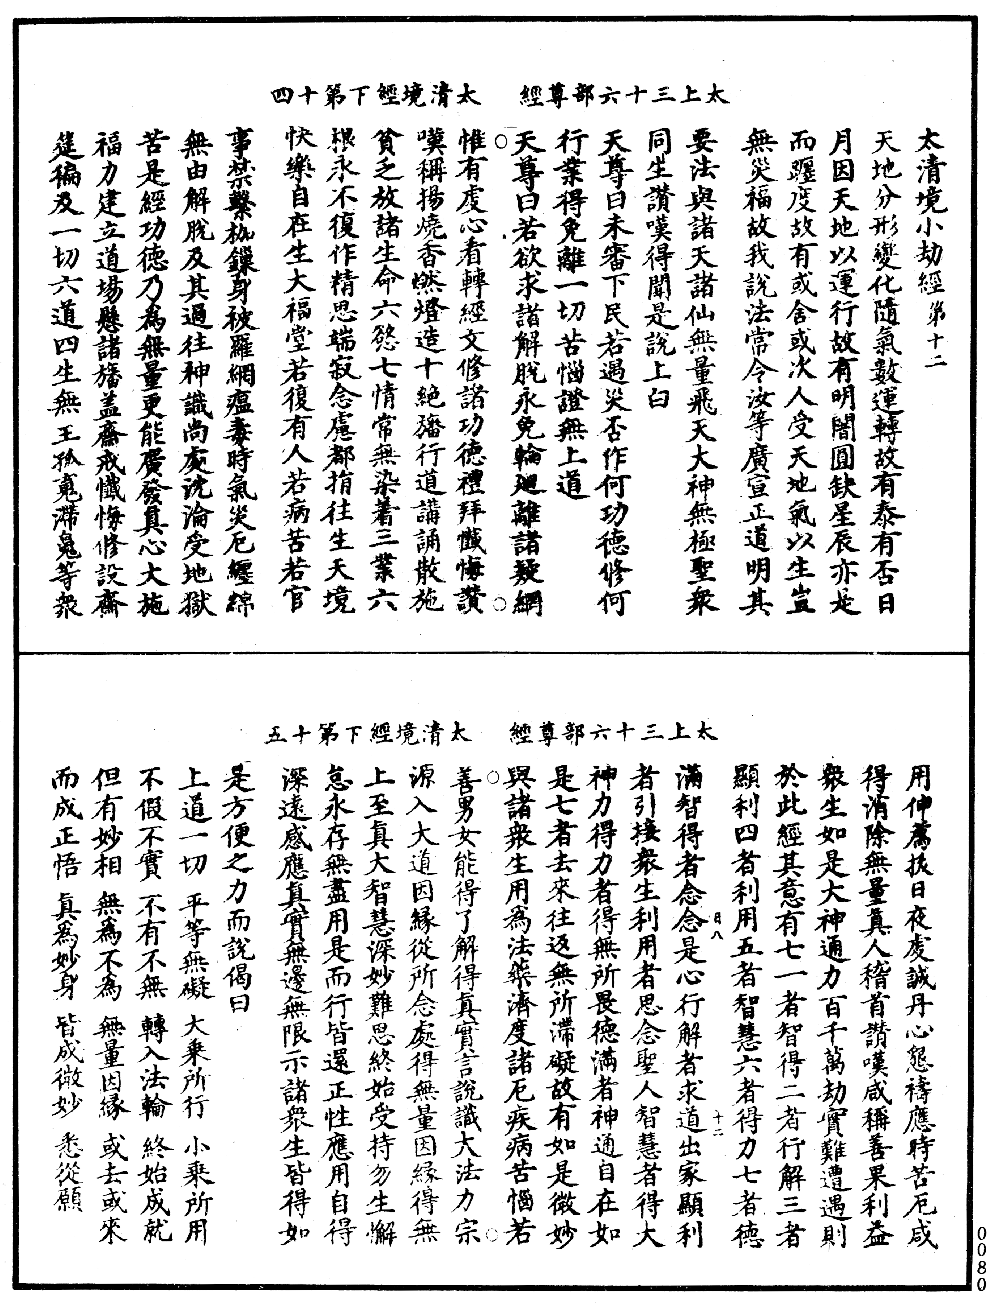 太上三十六部尊經　太清境經下第十四
太清境小劫經第十二
天地分形變化隨氣數運轉故有泰有否日
月因天地以運行故有明闇圓缺星辰亦是
而躔度故有或舍或次人受天地氣以生豈
無災福故我說法常令汝等廣宣正道明其
要法與諸天諸仙無量飛天大神無極聖衆
同生讚嘆得聞是說上白
天尊曰未審下民若遇災否作何功德修何
行業得免離一切苦惱證無上道
天尊曰若欲求諸解脫永免輪迴離諸疑網
惟有虔心看轉經文修諸功德禮拜懺悔讚
嘆稱揚燒香燃燈造十絕旛行道講誦散施
貧乏放諸生命六慾七情常無染着三業六
根永不復作精思端寂念慮都捐往生天境
快樂自在生大福堂若復有人若病苦若官
事禁繫枷鏁身被羅網瘟毒時氣災厄纏綿
無由解脫及其過往神識尚處沈淪受地獄
苦是經功德乃為無量更能廣發真心大施
福力建立道場懸諸旛蓋齋戒懺悔修設齋
筵徧及一切六道四生無主孤寃滯鬼等衆
太上三十六部尊經　太清境經下第十五
用伸薦拔日夜虔誠丹心懇禱應時苦厄咸
得消除無量真人稽首讚嘆咸稱善果利益
衆生如是大神通力百千萬劫實難遭遇則
於此經其意有七一者智得二者行解三者
顯利四者利用五者智慧六者得力七者德
滿智得者念念是心行解者求道出家顯利
者引接衆生利用者思念聖人智慧者得大
神力得力者得無所畏德滿者神通自在如
是七者去來往返無所滯礙故有如是微妙
與諸衆生用為法藥濟度諸厄疾病苦惱若
善男女能得了解得真實言說識大法力宗
源入大道因緣從所念處得無量因緣得無
上至真大智慧深妙難思終始受持勿生懈
怠永存無盡用是而行皆還正性應用自得
深遠感應真實無邊無限示諸衆生皆得如
是方便之力而說偈曰
上道一切　平等無礙　大乘所行　小乘所用
不假不實　不有不無　轉入法輪　終始成就
但有妙相　無為不為　無量因緣　或去或來
而成正悟　真為妙身　皆成微妙　悉從願
日八
十二
0080